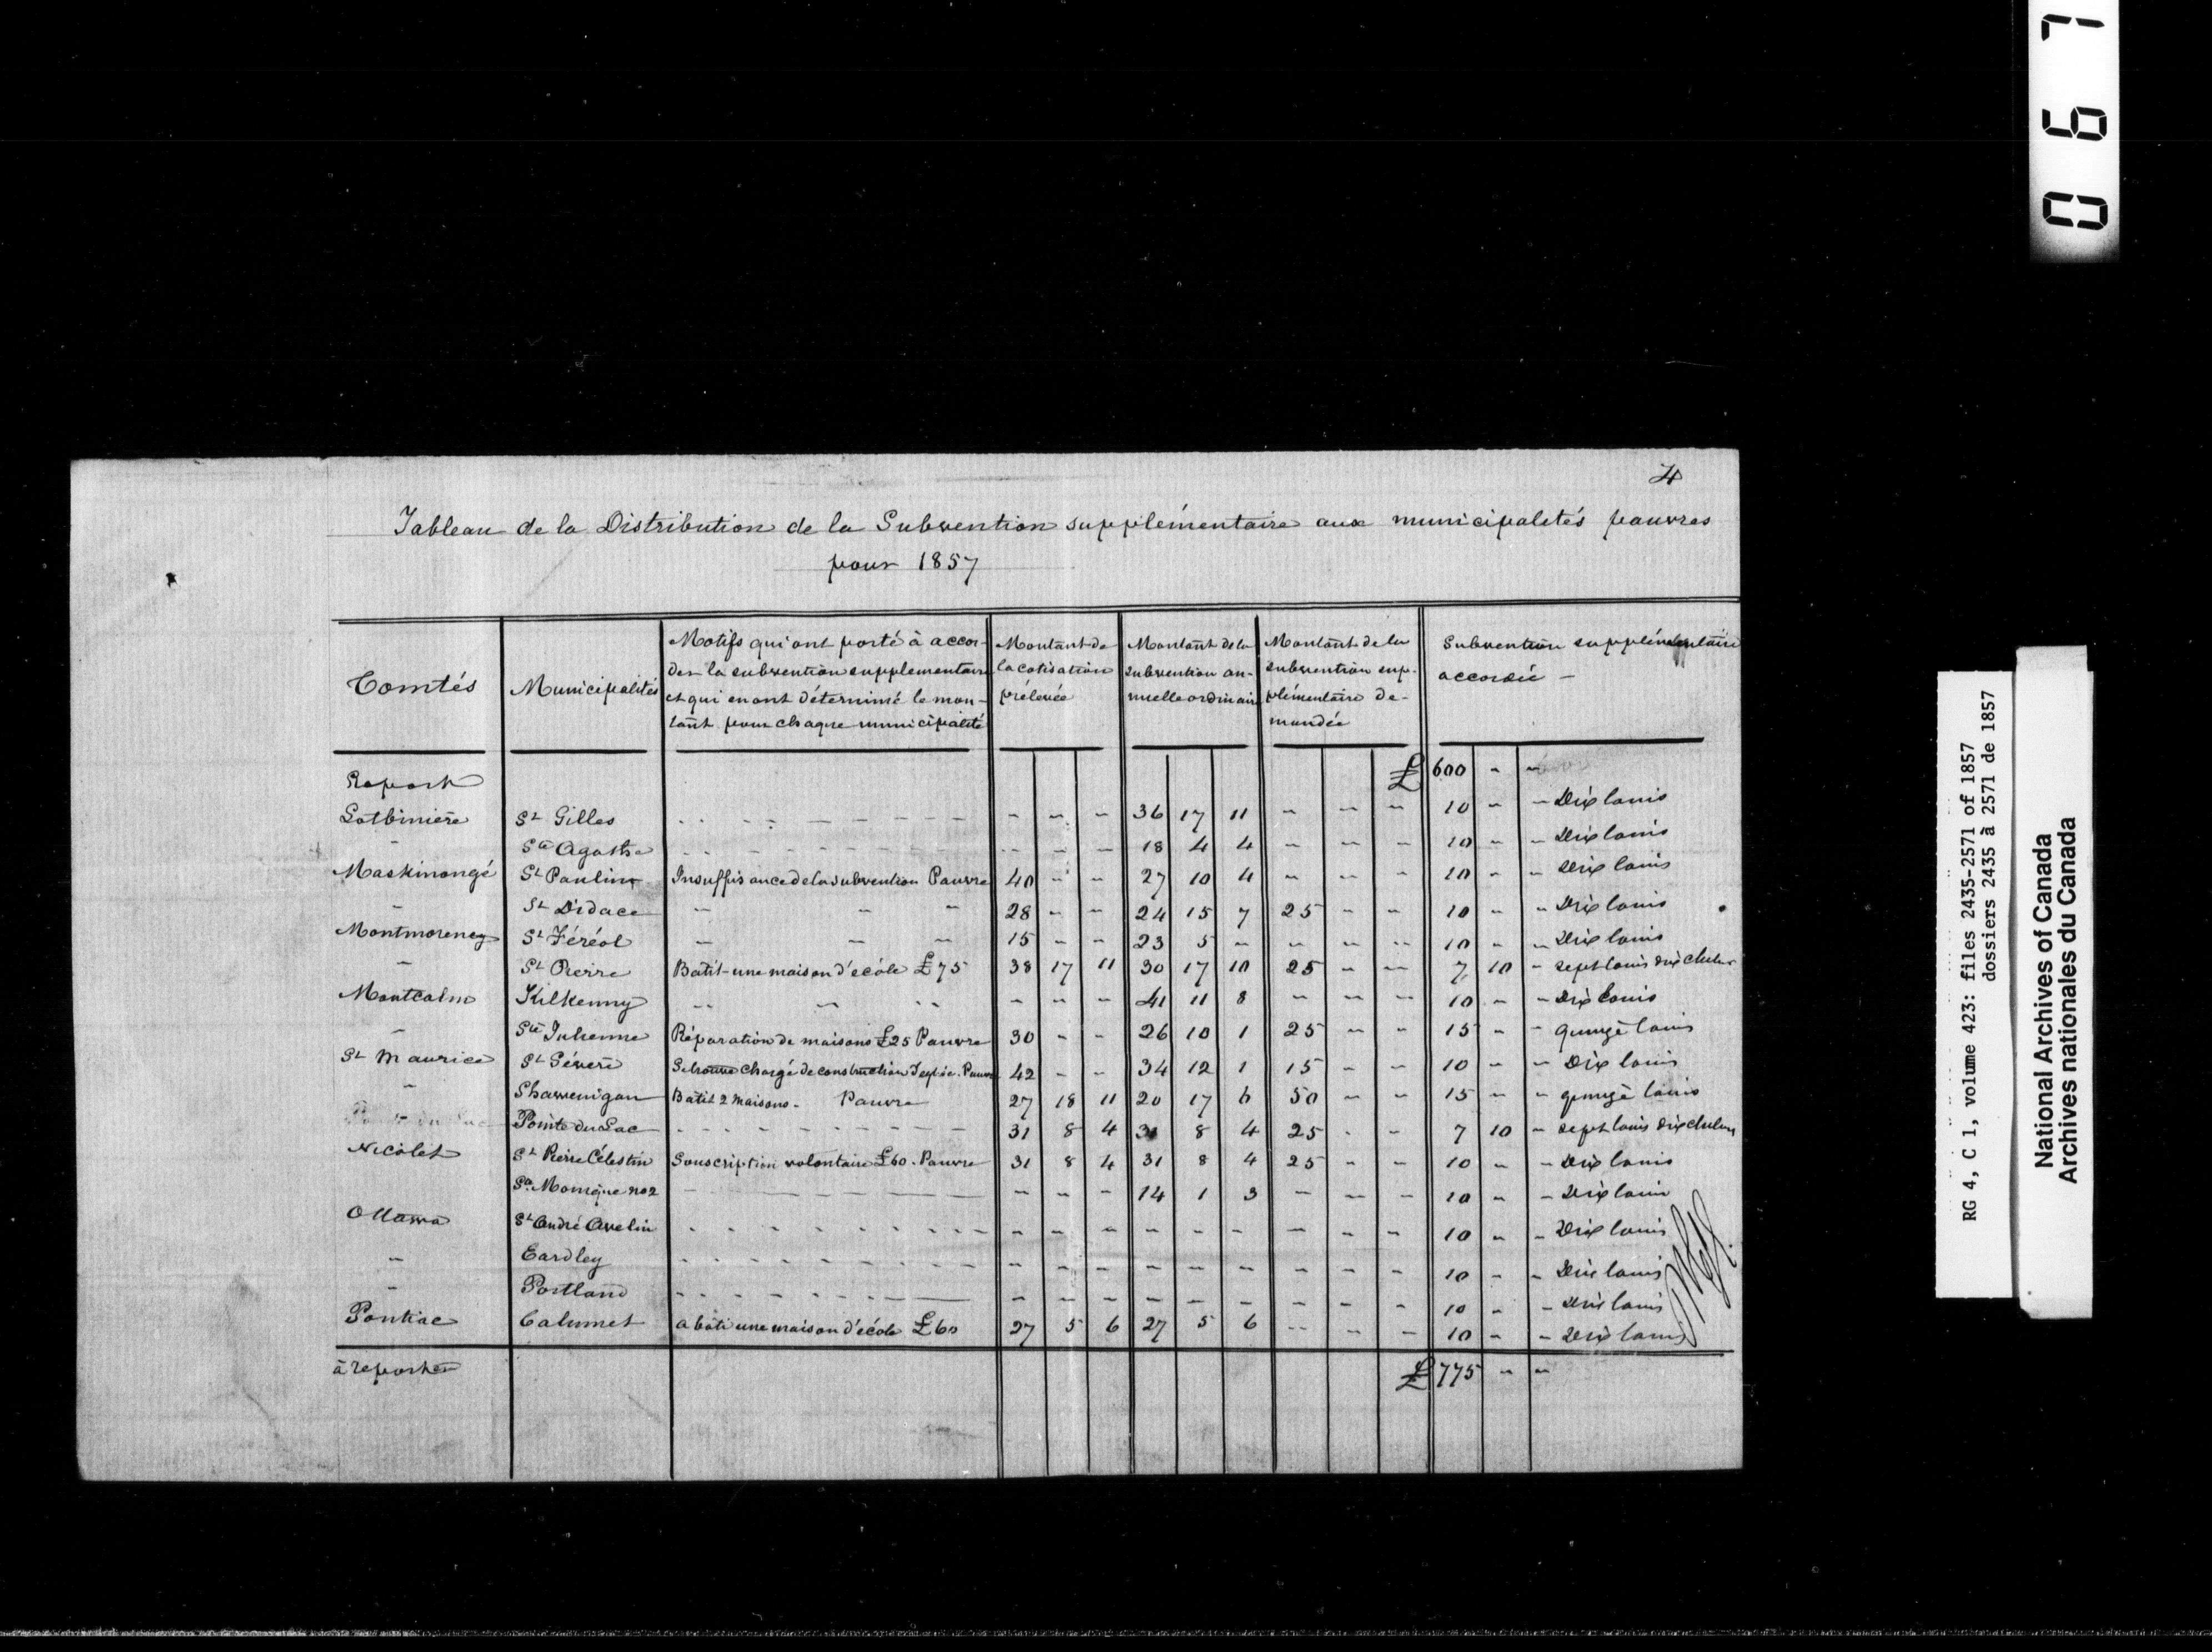 4
Tableau de la Distribution de la Subvention supplémentaire aux municipalités pauvres
pour 1857
Comtés | Municipalités | Motifs qui ont porté à accor-der la subvention supplementaire et qui en ont déterminé le mon-tant pour chaque municipalité | Montant de la cotisation prélevée | Montant de la subvention an-nuelle ordinaire | Montant de la subvention sup-plémentaire de-mandée | Subvention supplémentaire accordée -
Report £ 600 - -
Lotbinière St Gilles - - - 36 17 11 - - - 10 - - Dix louis
" Ste Agathe - - - 18 4 4 - - - 10 - - Dix louis
Maskinongé St Paulin Insuffisance de la subvention Pauvre 40 - - 27 10 4 - - - 10 - - Dix louis
" St Didace " " " 28 - - 24 15 7 25 - - 10 - - Dix louis
Montmorency St Féréol " " " 15 - - 23 5 - - - - 10 - - Dix louis
" St Pierre Batit une maison d'école £75 38 17 11 30 17 10 25 - - 7 10 - sept louis dix chelins
Montcalm Kilkenny - - - 41 11 8 - - - 10 - - Dix louis
" Ste Julienne Réparation de maisons £25 Pauvre 30 - - 26 10 1 25 - - 15 - - quinze louis
St Maurice St Sévère Se trouve chargé de construction d'eglise. Pauvre 42 - - 34 12 1 15 - - 10 - - Dix louis
" Shawenigan Bâtit 2 maisons - Pauvre 27 18 11 20 17 6 50 - - 15 - - quinze louis
Pointe du Lac 31 8 4 31 8 4 25 - - 7 10 - sept louis dix chelins
Nicolet St Pierre Célestin Souscription volontaire £60. Pauvre 31 8 4 31 8 4 25 - - 10 - - Dix louis
Ste Monique no 2 - - - 14 1 3 - - - 10 - - Dix louis
Ottawa St André Avelin - - - - - - - - - 10 - - Dix louis
" Eardley - - - - - - - - - 10 - - Dix louis
" Portland - - - - - - - - - 10 - - Dix louis
Pontiac Calumet a bâti une maison d'école £60 27 5 6 27 5 6 - - - 10 - - Dix louis
à reporter £ 775 - -
067
RG 4, C 1, volume 423: files 2435-2571 of 1857
dossiers 2435 à 2571 de 1857
National Archives of Canada
Archives nationales du Canada